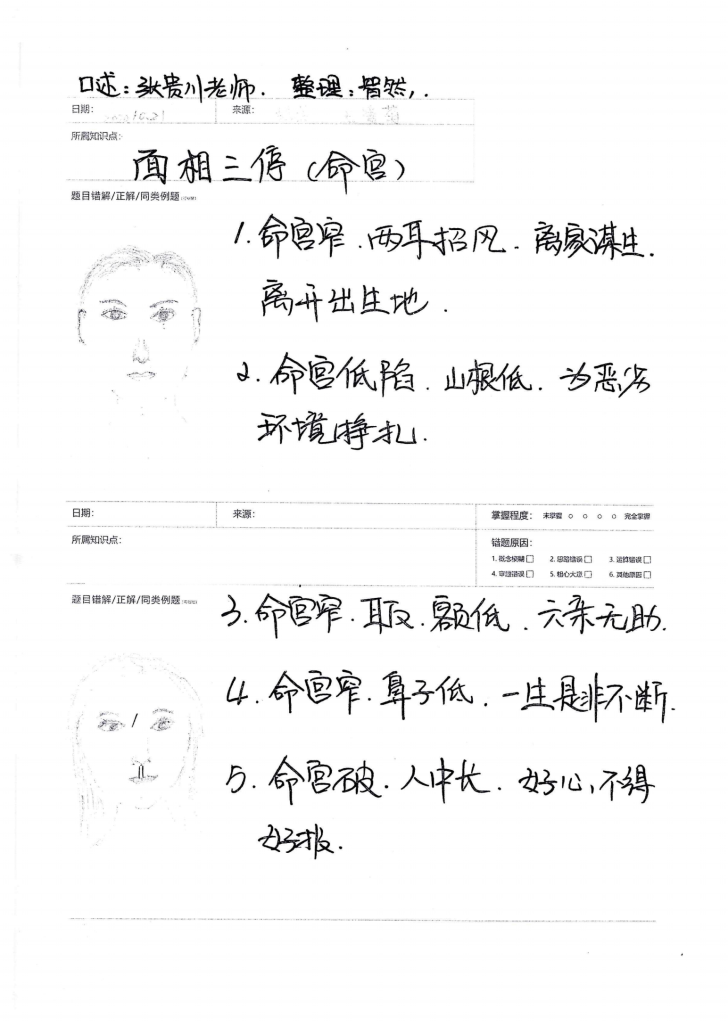 口述：张贵川老师． 整理：智然，．
日期： 来源：
所属知识点：
面相三停（命宫）
题目错解/正解/同类例题
1. 命宫窄．两耳招风．离家谋生．
离开出生地．
2. 命宫低陷．山根低．为恶劣
环境挣扎．
日期： 来源： 掌握程度： 未掌握 ○ ○ ○ ○ 完全掌握
所属知识点： 错题原因：
1. 概念模糊□ 2. 思路错误□ 3. 运算错误□
4. 审题错误□ 5. 粗心大意□ 6. 其他原因□
题目错解/正解/同类例题
3. 命宫窄．耳反．额低．六亲无助．
4. 命宫窄．鼻子低．一生是非不断．
5. 命宫破．人中长．好心，不得
好报．